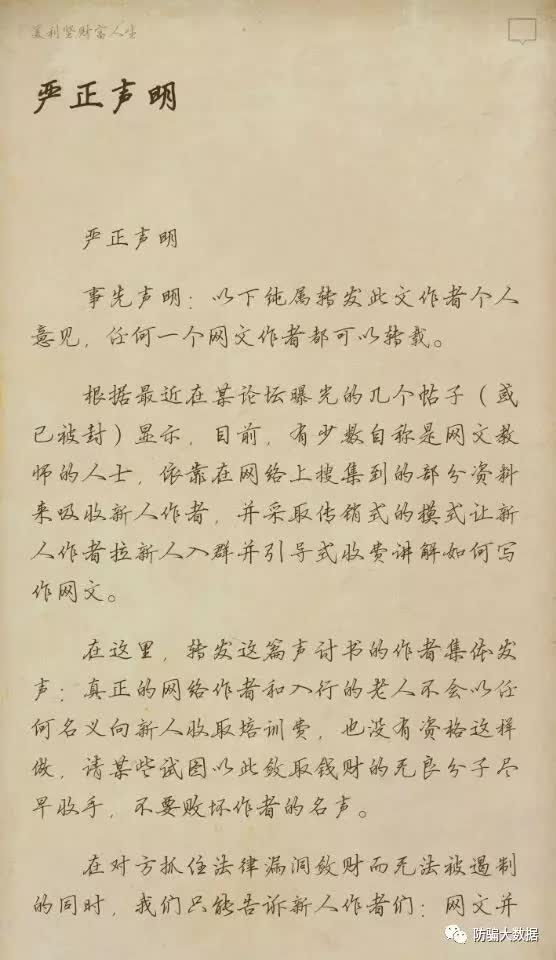 美利坚财富人生
严正声明
严正声明
事先声明：以下纯属转发此文作者个人
意见，任何一个网文作者都可以转载。
根据最近在某论坛曝光的几个帖子（或
已被封）显示，目前，有少数自称是网文教
师的人士，依靠在网络上搜集到的部分资料
来吸收新人作者，并采取传销式的模式让新
人作者拉新人入群并引导式收费讲解如何写
作网文。
在这里，转发这篇声讨书的作者集体发
声：真正的网络作者和入行的老人不会以任
何名义向新人收取培训费，也没有资格这样
做，请某些试图以此敛取钱财的无良分子尽
早收手，不要败坏作者的名声。
在对方抓住法律漏洞敛财而无法被遏制
的同时，我们只能告诉新人作者们：网文并
防骗大数据